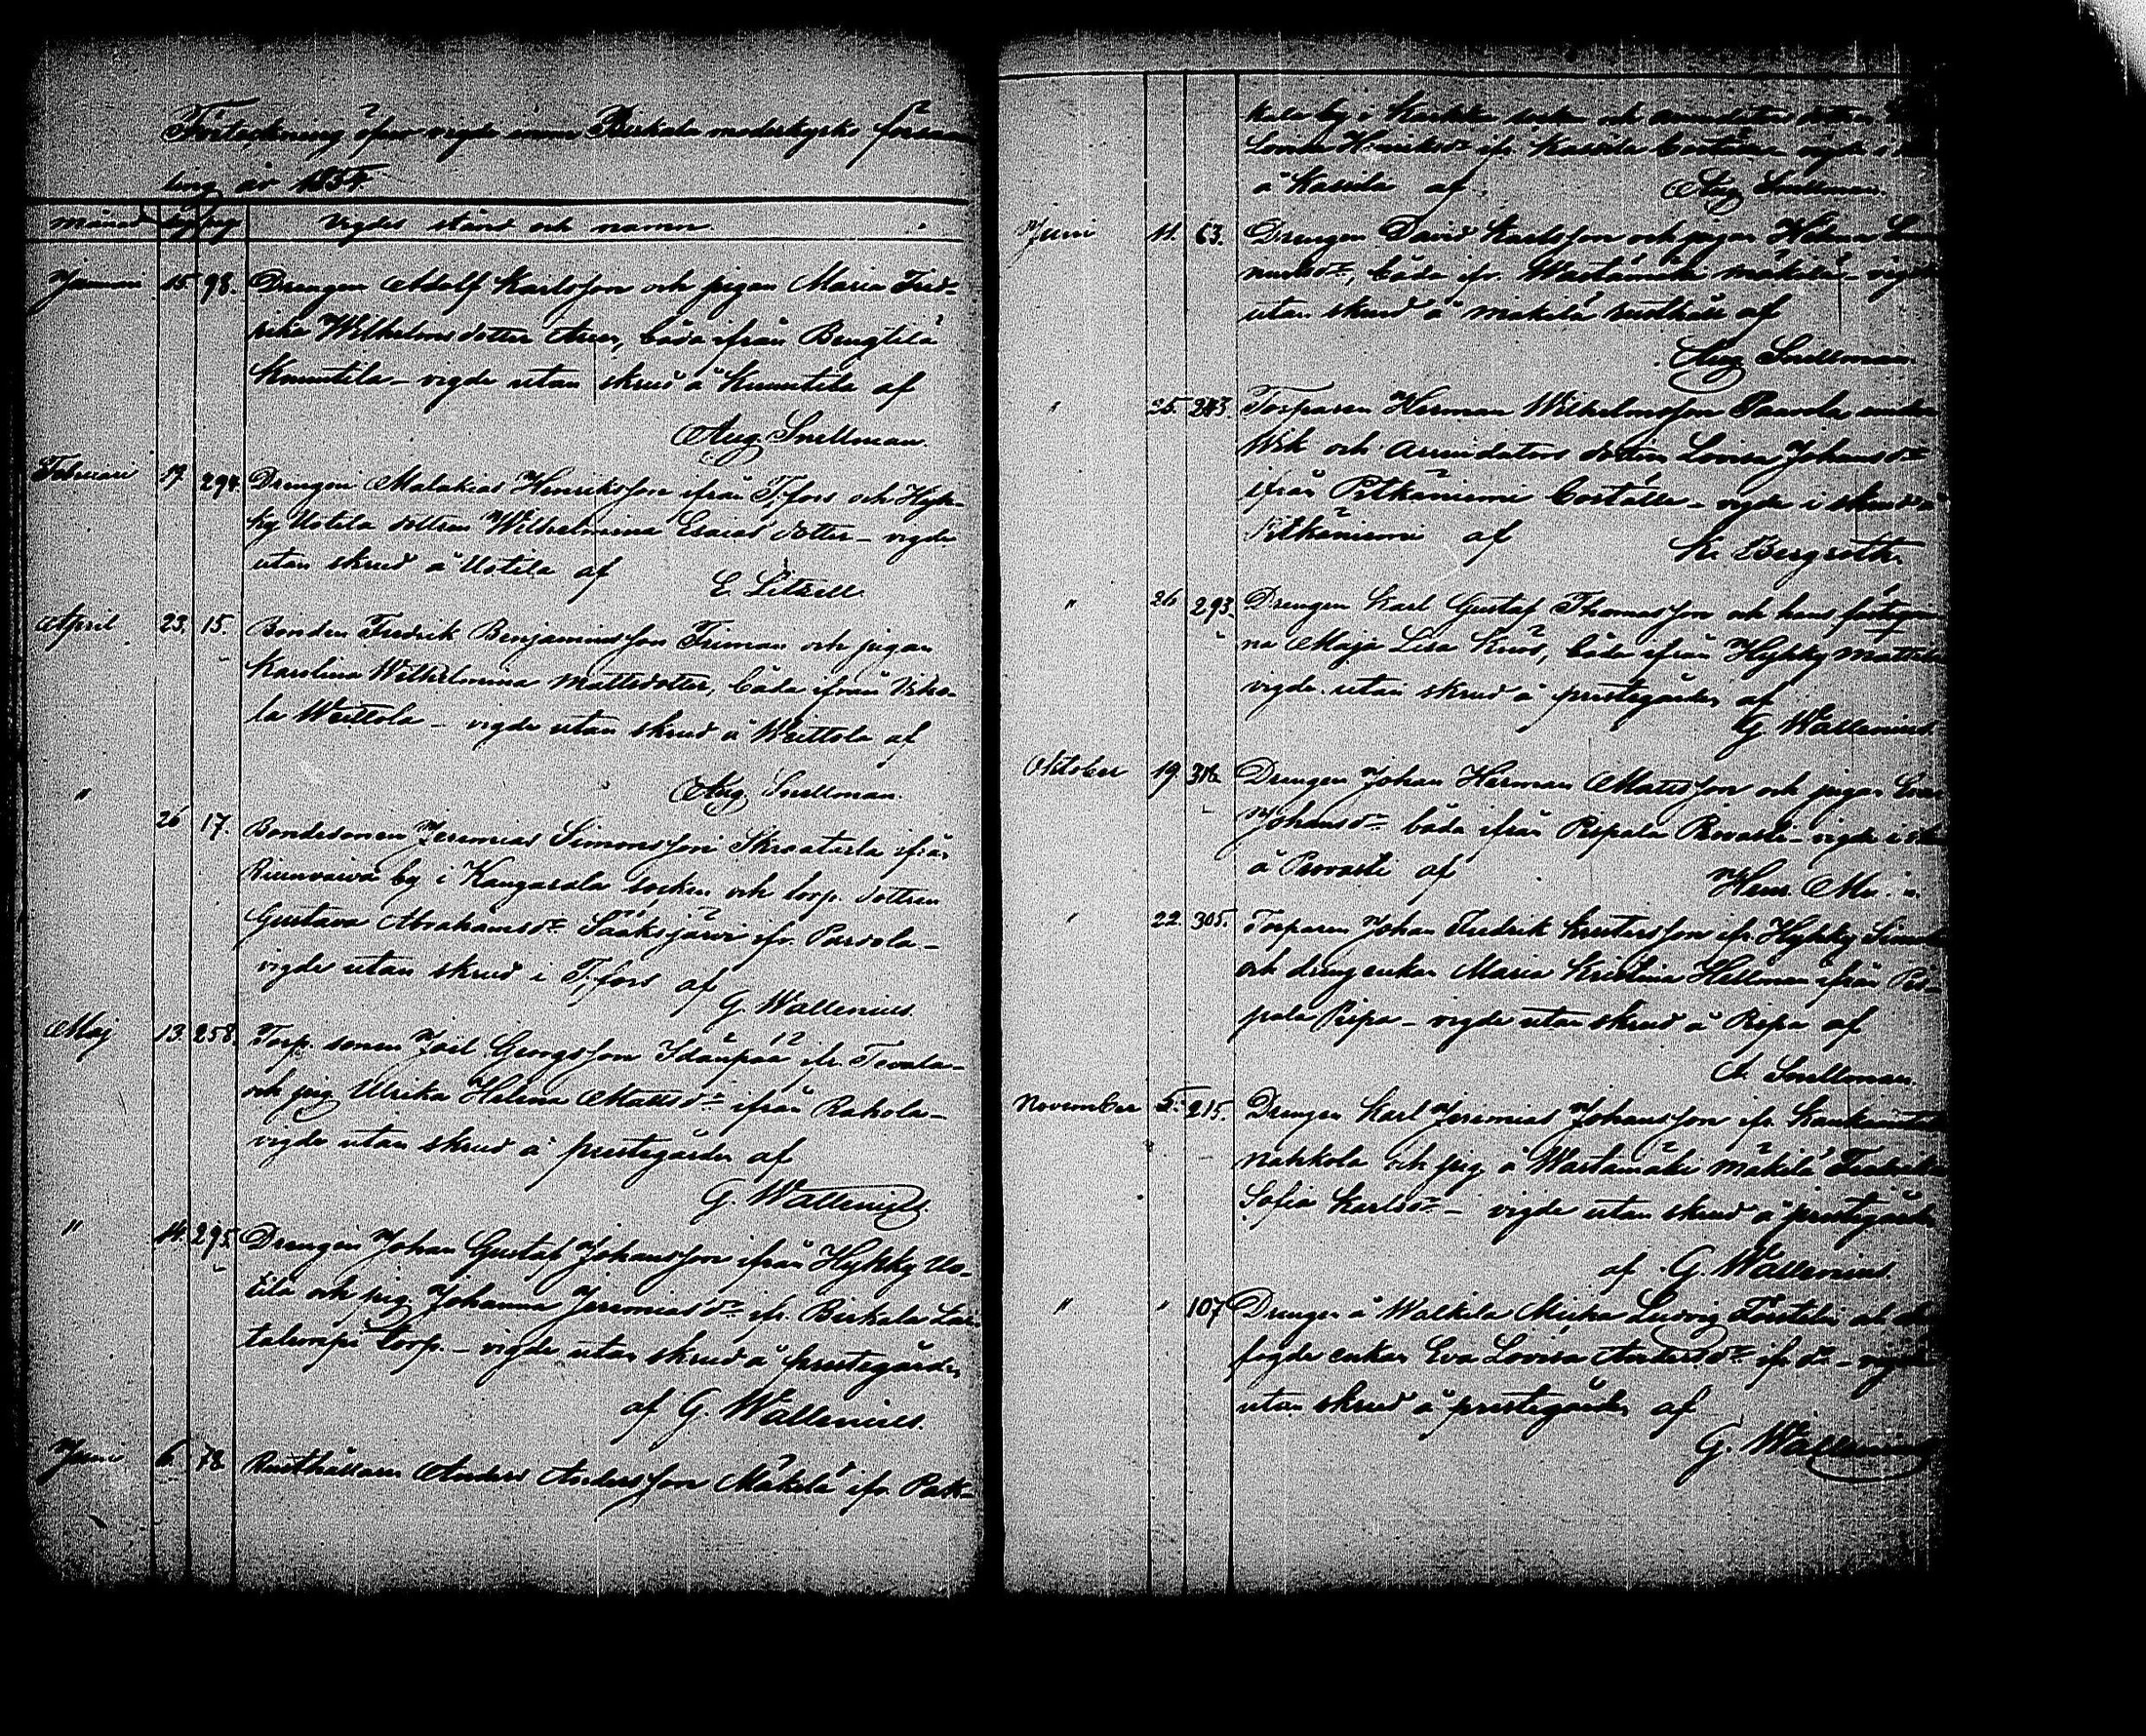 Förteckning öfver vigde inom Birkala moderkyrko försam
ling år 1854.
månad dag pag vigdes stånd och namn.
Januari 15 98. Drengen Adolf Karlsson och pigan Maria Fred-
rika Wilhelmsdotter, båda ifrån Bengtilä
Knuutila - vigde utan skrud å Knuutila af
Aug Snellman.
Februari 19. 294. Drengen Malakias Henriksson ifrån T.fors och Hyh-
ky Uotila dottren Wilhelmina Esaias dotter - vigde
utan skrud å Uotila af E. Litzell
April 23. 15. Bonden Fredrik Benjaminsson Friman och pigan
Karolina Wilhelmina Mattsdotter, båda ifrån
la Weittola - vigde utan skrud å Weittola af
Aug Snellman.
" 26 17. Bondesonen Jeremias Simonsson ifrån
by i Kangasala socken och torp. dottren
Gustava Abrahamsdr Sääksjärvi ifr. Partola -
vigde utan skrud i T.fors af
G. Wallenius.
Maj 13. 258. Torp. sonen Joel Georgsson ifr.
och pig. Ulrika Helena Mattsdr ifrån Rahola -
vigde utan skrud å prestegården af
G. Wallenius.
" 14. 295. Drengen Johan Gustaf Johansson ifrån Hyhky Uo-
tila och pig. Johanna Jeremiasdr ifr. Birkala
torp. - vigde utan skrud å prestegården
af G. Wallenius.
Juni 6 72 Rusthållaren Anders Andersson Mäkelä ifr. Pak-
kala by i socken och dottren
Lovisa Henriksdr ifr. Kassila vigde i
å Kassila af Aug Snellman.
Juni 11. 63. Drengen David Karlsson och pigan Helena
båda ifr. Wastamäki Mäkilä - vigde
utan skrud å Mäkilä rusthåll af
Aug Snellman
" 25. 243. Torparen Herman Wilhelmsson Paavola under
Wik och Arrendators dottren Lovisa Johansdr
ifrån Pitkäniemi boställe - vigde i skrud å
Pitkäniemi af K. Bergroth.
" 26 293. Drengen Karl Gustaf Thomasson och hans
Maja Lisa båda ifrån Hyhky Mattila
vigde utan skrud å prestegården af
G Wallenius.
Oktober 19 316 Drengen Johan Herman Mattsson och pigan Eva
Johansdr båda ifrån Pispala Provasti - vigde i
å Provasti af Henr.
" 22. 305. Torparen Johan Fredrik ifr. Hyhky
och dreng enkan Maria Kristina Hellman ifrån Pis-
pala Pispa - vigde utan skrud å Pispa af
A. Snellman.
November 5. 215. Drengen Karl Jeremias Johansson ifr.
Nakkola och pig å Wastamäki Mäkilä Fredrika
Sofia Karlsdr - vigde utan skrud å prestegården
af G. Wallenius.
" " 107 Drengen å Walkila Ludvig
fogde enkan Eva Lovisa Andersdr ifr. do - vigde
utan skrud å prestegården af
G. Wallenius